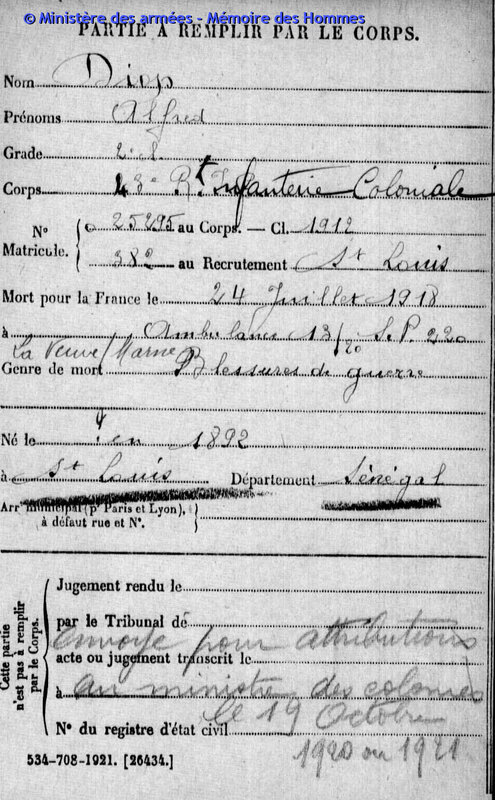 © Ministère des armées - Mémoire des Hommes
PARTIE À REMPLIR PAR LE CORPS.
Nom Diop
Prénoms Alfred
Grade 2e cl
Corps 43e Rt Infanterie Coloniale
N° Matricule. { 25295 au Corps. — Cl. 1912
382 au Recrutement St Louis
Mort pour la France le 24 Juillet 1918
à Ambulance 13/20 S.P. 220
La Veuve (Marne)
Genre de mort Blessures de guerre
Né le en 1892
à St Louis Département Sénégal
Arr municipal (pr Paris et Lyon),
à défaut rue et N°.
Cette partie n'est pas à remplir par le Corps.
Jugement rendu le
par le Tribunal de
envoyé pour attributions
acte ou jugement transcrit le
à au ministre des colonies
le 19 Octobre
N° du registre d'état civil
1920 ou 1921
534-708-1921. [26434.]